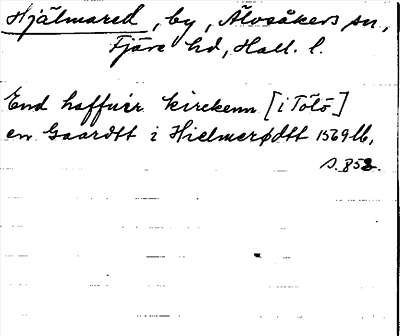 Hjälmared, by, Älvsåkers sn,
Fjäre hd, Hall. l.
End haffuer kirckenn [i Tölö]
en Gaardtt i Hielmerødtt 1569 lb,
s. 852.